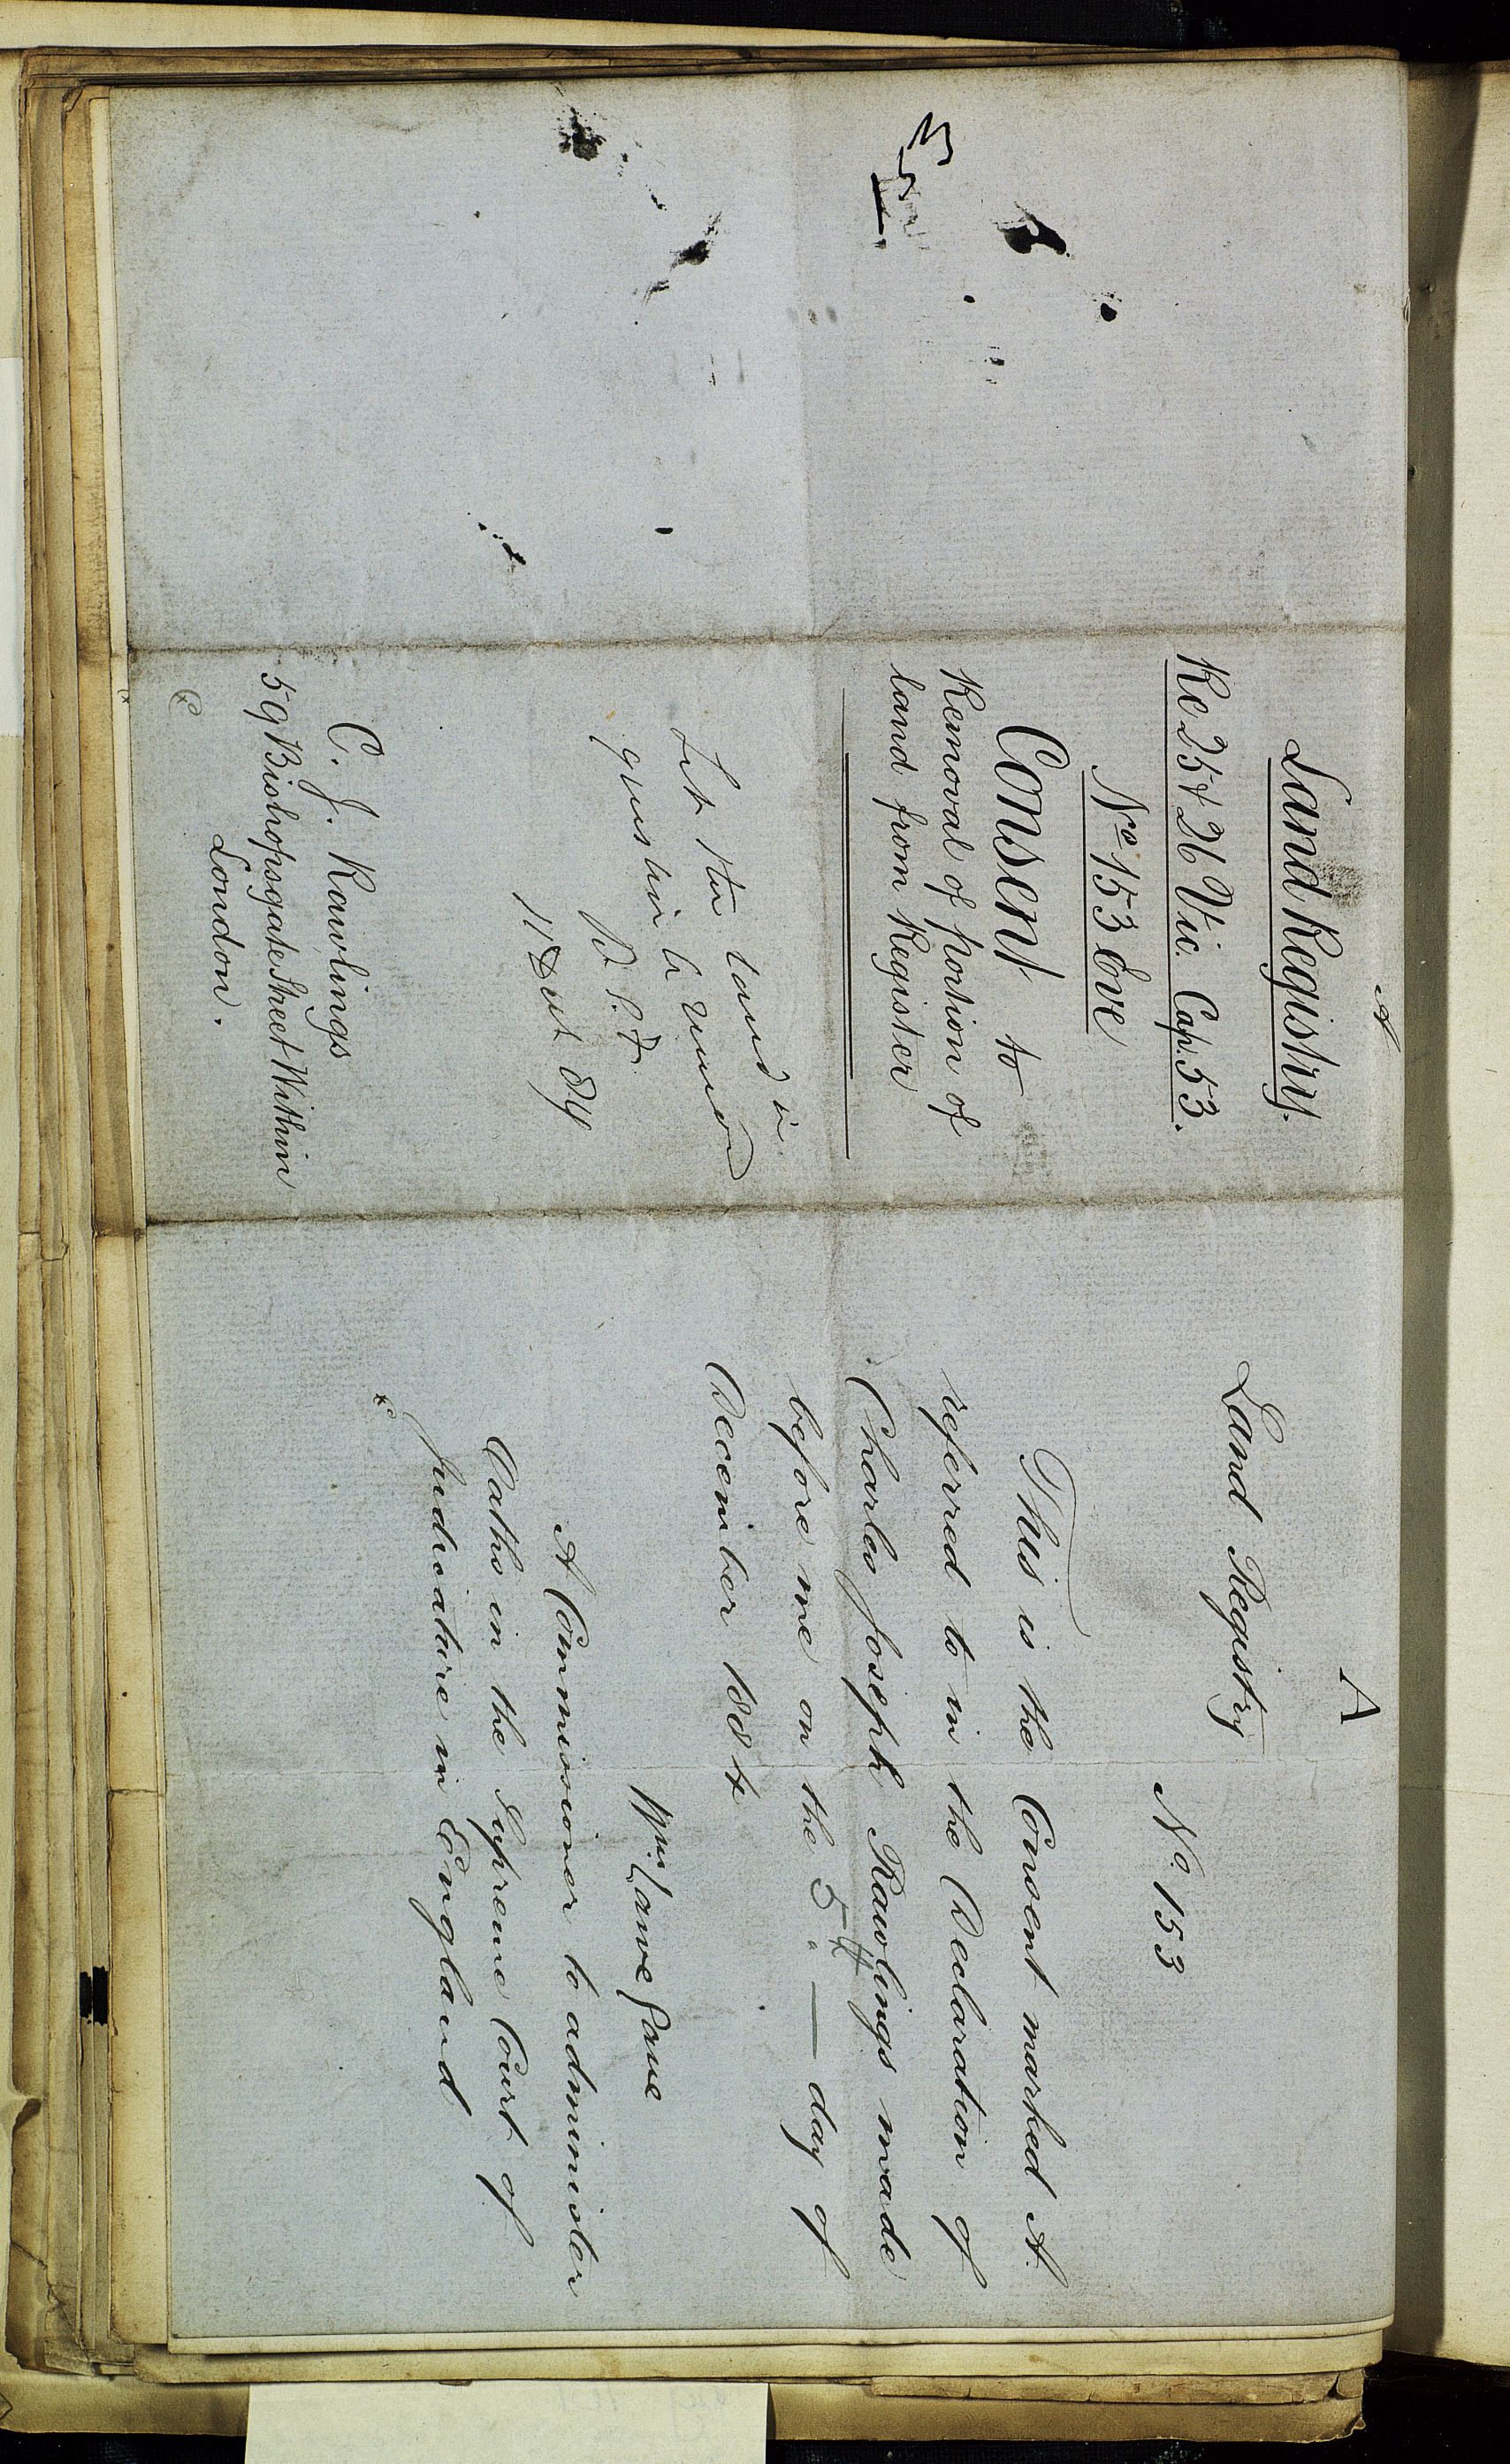 A
Land Registry.
Re 25 & 26 Vic. Cap. 53.
No 153 Eve
Consent to
Removal of portion of
land from Register
Let the land in
question be removed
11 Dec 84
C. J. Rawlings
59 Bishopsgate Street Within
London.
A
Land Registry
No. 153
This is the Consent marked A
referred to in the Declaration of
Charles Joseph Rawlings made
before me on the 5th day of
December 1884
Wm. Lane
A Commissioner to administer
Oaths in the Supreme Court of
Judicature in England